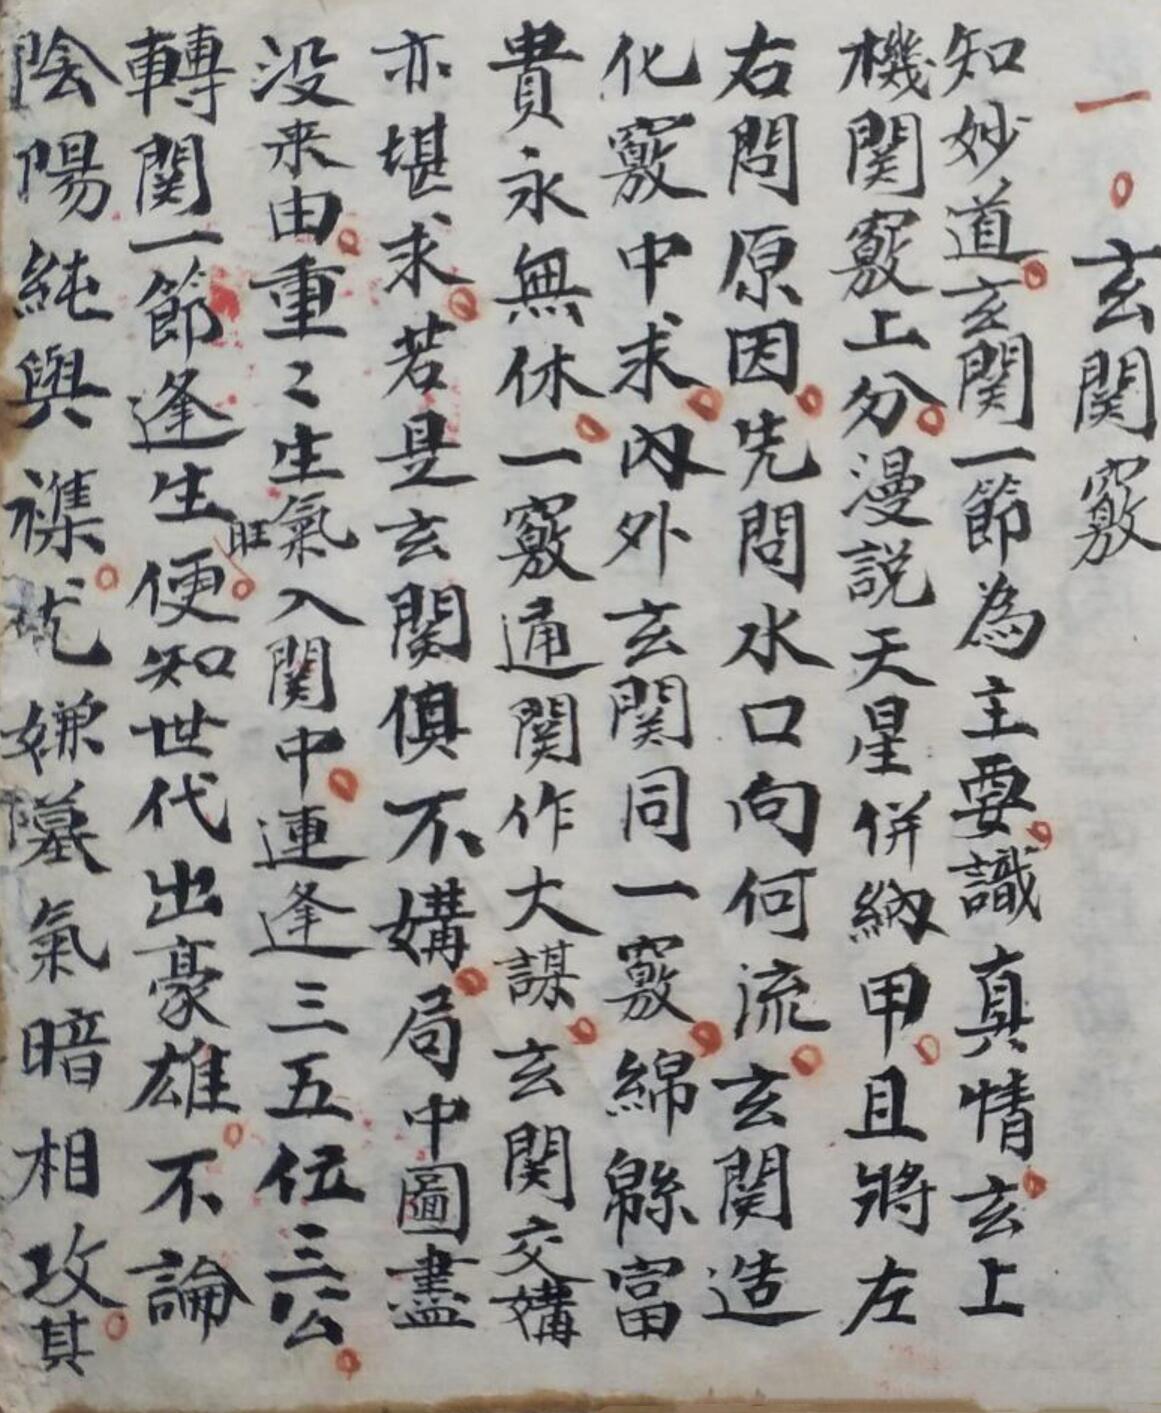 一。玄関竅
知妙道。玄関一節為主要。識真情。玄上
機関竅上分。漫説天星併納甲。且将左
右問原因。先問水口向何流。玄関造
化竅中求。內外玄関同一竅。綿綿富
貴永無休。一竅通関作大謀。玄関交媾
亦堪求。若是玄関俱不媾。局中圖盡
没来由。重〻生氣入関中。連逢三五位三公。
轉関一節逢生旺。便知世代出豪雄。不論
陰陽純與襍。尤嫌墓氣暗相攻。其